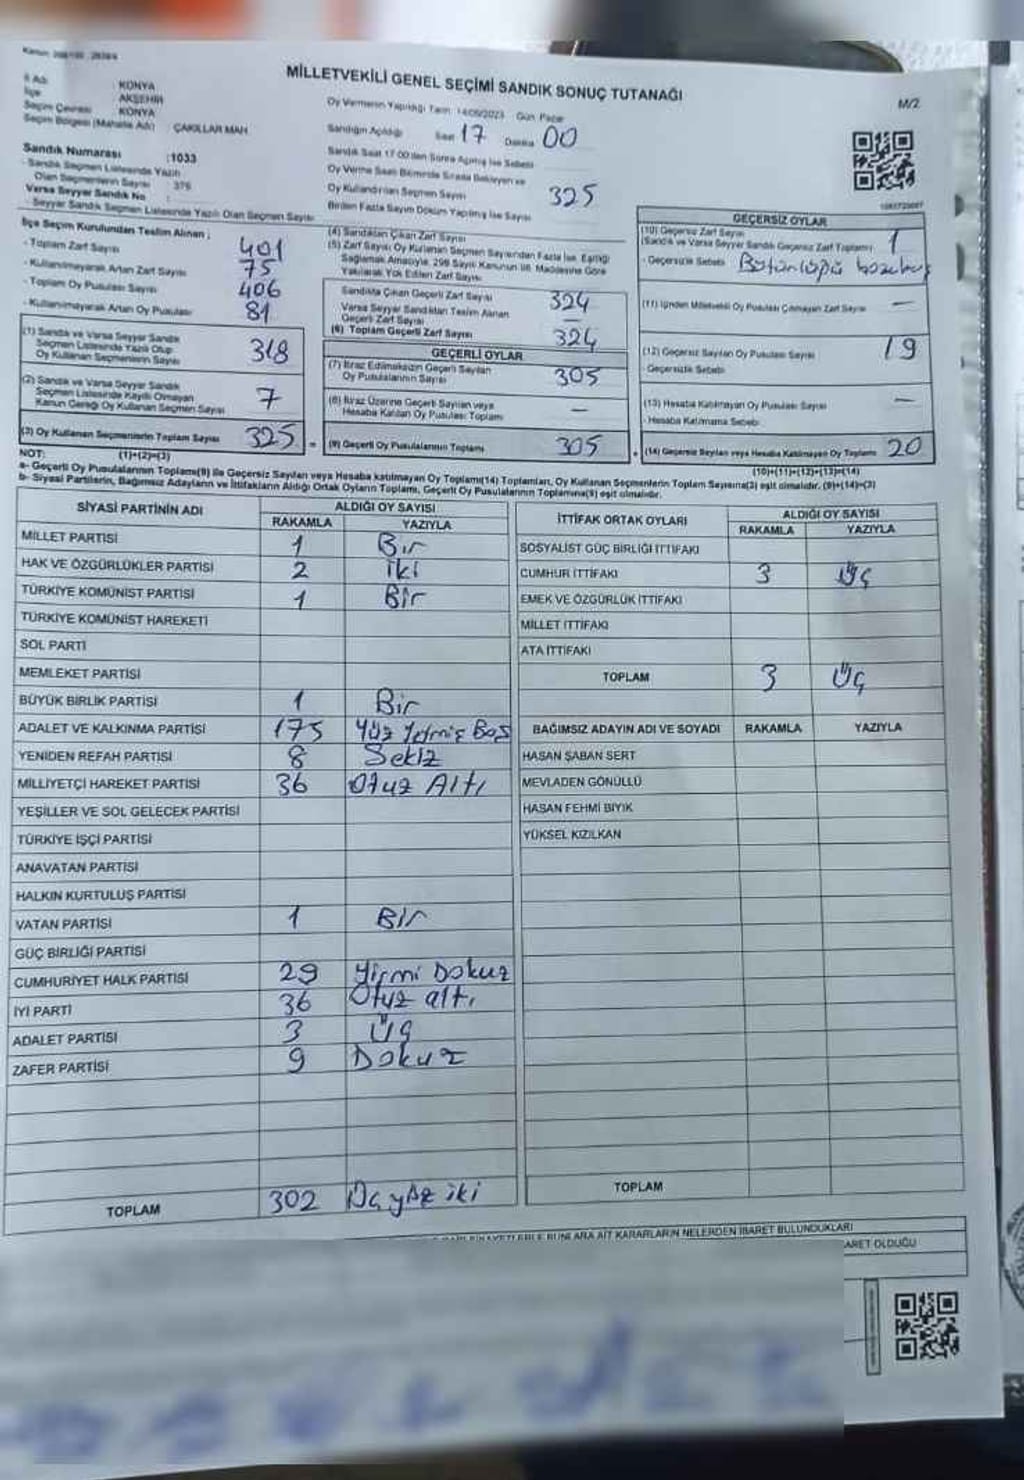 MİLLETVEKİLİ GENEL SEÇİMİ SANDIK SONUÇ TUTANAĞI
M/2
İl Adı : KONYA
İlçe AKŞEHİR
Seçim Çevresi KONYA
Seçim Bölgesi (Mahalle Adı) ÇAKILLAR MAH
Sandık Numarası :1033
- Sandık Seçmen Listesinde Yazılı
Olan Seçmenlerin Sayısı : 376
Varsa Seyyar Sandık No :
- Seyyar Sandık Seçmen Listesinde Yazılı Olan Seçmen Sayısı
Oy Vermenin Yapıldığı Tarih: 14/05/2023 Gün: Pazar
Sandığın Açıldığı Saat 17 Dakika 00
Sandık Saat 17:00'den Sonra Açılmış İse Sebebi
Oy Verme Saati Bitiminde Sırada Bekleyen ve
Oy Kullandırılan Seçmen Sayısı 325
Birden Fazla Sayım Döküm Yapılmış İse Sayısı
İlçe Seçim Kurulundan Teslim Alınan ;
- Toplam Zarf Sayısı 401
- Kullanılmayarak Artan Zarf Sayısı 75
- Toplam Oy Pusulası Sayısı 406
- Kullanılmayarak Artan Oy Pusulası 81
(1) Sandık ve Varsa Seyyar Sandık
Seçmen Listesinde Yazılı Olup
Oy Kullanan Seçmenlerin Sayısı 318
(2) Sandık ve Varsa Seyyar Sandık
Seçmen Listesinde Kayıtlı Olmayan
Kanun Gereği Oy Kullanan Seçmen Sayısı 7
(3) Oy Kullanan Seçmenlerin Toplam Sayısı 325
(4) Sandıktan Çıkan Zarf Sayısı
(5) Zarf Sayısı Oy Kullanan Seçmen Sayısından Fazla İse, Eşitliği
Sağlamak Amacıyla, 298 Sayılı Kanunun 98. Maddesine Göre
Yakılarak Yok Edilen Zarf Sayısı
Sandıkta Çıkan Geçerli Zarf Sayısı 324
Varsa Seyyar Sandıktan Teslim Alınan
Geçerli Zarf Sayısı —
(6) Toplam Geçerli Zarf Sayısı 324
GEÇERLİ OYLAR
(7) İtiraz Edilmeksizin Geçerli Sayılan
Oy Pusulalarının Sayısı 305
(8) İtiraz Üzerine Geçerli Sayılan veya
Hesaba Katılan Oy Pusulası Toplamı —
(9) Geçerli Oy Pusulalarının Toplamı 305
GEÇERSİZ OYLAR
(10) Geçersiz Zarf Sayısı
(Sandık ve Varsa Seyyar Sandık Geçersiz Zarf Toplamı) 1
- Geçersizlik Sebebi Bütünlüğü bozulmuş
(11) İçinden Milletvekili Oy Pusulası Çıkmayan Zarf Sayısı —
(12) Geçersiz Sayılan Oy Pusulası Sayısı 19
- Geçersizlik Sebebi
(13) Hesaba Katılmayan Oy Pusulası Sayısı —
- Hesaba Katılmama Sebebi
(14) Geçersiz Sayılan veya Hesaba Katılmayan Oy Toplamı 20
NOT: (1)+(2)=(3) (10)+(11)+(12)+(13)=(14)
a- Geçerli Oy Pusulalarının Toplamı(9) ile Geçersiz Sayılan veya Hesaba katılmayan Oy Toplamı(14) Toplamları, Oy Kullanan Seçmenlerin Toplam Sayısına(3) eşit olmalıdır. (9)+(14)=(3)
b- Siyasi Partilerin, Bağımsız Adayların ve İttifakların Aldığı Ortak Oyların Toplamı, Geçerli Oy Pusulalarının Toplamına(9) eşit olmalıdır.
SİYASİ PARTİNİN ADI ALDIĞI OY SAYISI
RAKAMLA YAZIYLA
MİLLET PARTİSİ 1 Bir
HAK VE ÖZGÜRLÜKLER PARTİSİ 2 iki
TÜRKİYE KOMÜNİST PARTİSİ 1 Bir
TÜRKİYE KOMÜNİST HAREKETİ
SOL PARTİ
MEMLEKET PARTİSİ
BÜYÜK BİRLİK PARTİSİ 1 Bir
ADALET VE KALKINMA PARTİSİ 175 Yüz Yetmiş Beş
YENİDEN REFAH PARTİSİ 8 Sekiz
MİLLİYETÇİ HAREKET PARTİSİ 36 Otuz Altı
YEŞİLLER VE SOL GELECEK PARTİSİ
TÜRKİYE İŞÇİ PARTİSİ
ANAVATAN PARTİSİ
HALKIN KURTULUŞ PARTİSİ
VATAN PARTİSİ 1 Bir
GÜÇ BİRLİĞİ PARTİSİ
CUMHURİYET HALK PARTİSİ 29 Yirmi Dokuz
İYİ PARTİ 36 Otuz altı
ADALET PARTİSİ 3 Üç
ZAFER PARTİSİ 9 Dokuz
TOPLAM 302 Üç yüz iki
İTTİFAK ORTAK OYLARI ALDIĞI OY SAYISI
RAKAMLA YAZIYLA
SOSYALİST GÜÇ BİRLİĞİ İTTİFAKI
CUMHUR İTTİFAKI 3 Üç
EMEK VE ÖZGÜRLÜK İTTİFAKI
MİLLET İTTİFAKI
ATA İTTİFAKI
TOPLAM 3 Üç
BAĞIMSIZ ADAYIN ADI VE SOYADI RAKAMLA YAZIYLA
HASAN ŞABAN SERT
MEVLADEN GÖNÜLLÜ
HASAN FEHMİ BIYIK
YÜKSEL KIZILKAN
TOPLAM
BUNLARA AİT KARARLARIN NELERDEN İBARET BULUNDUKLARI
OLDUĞU